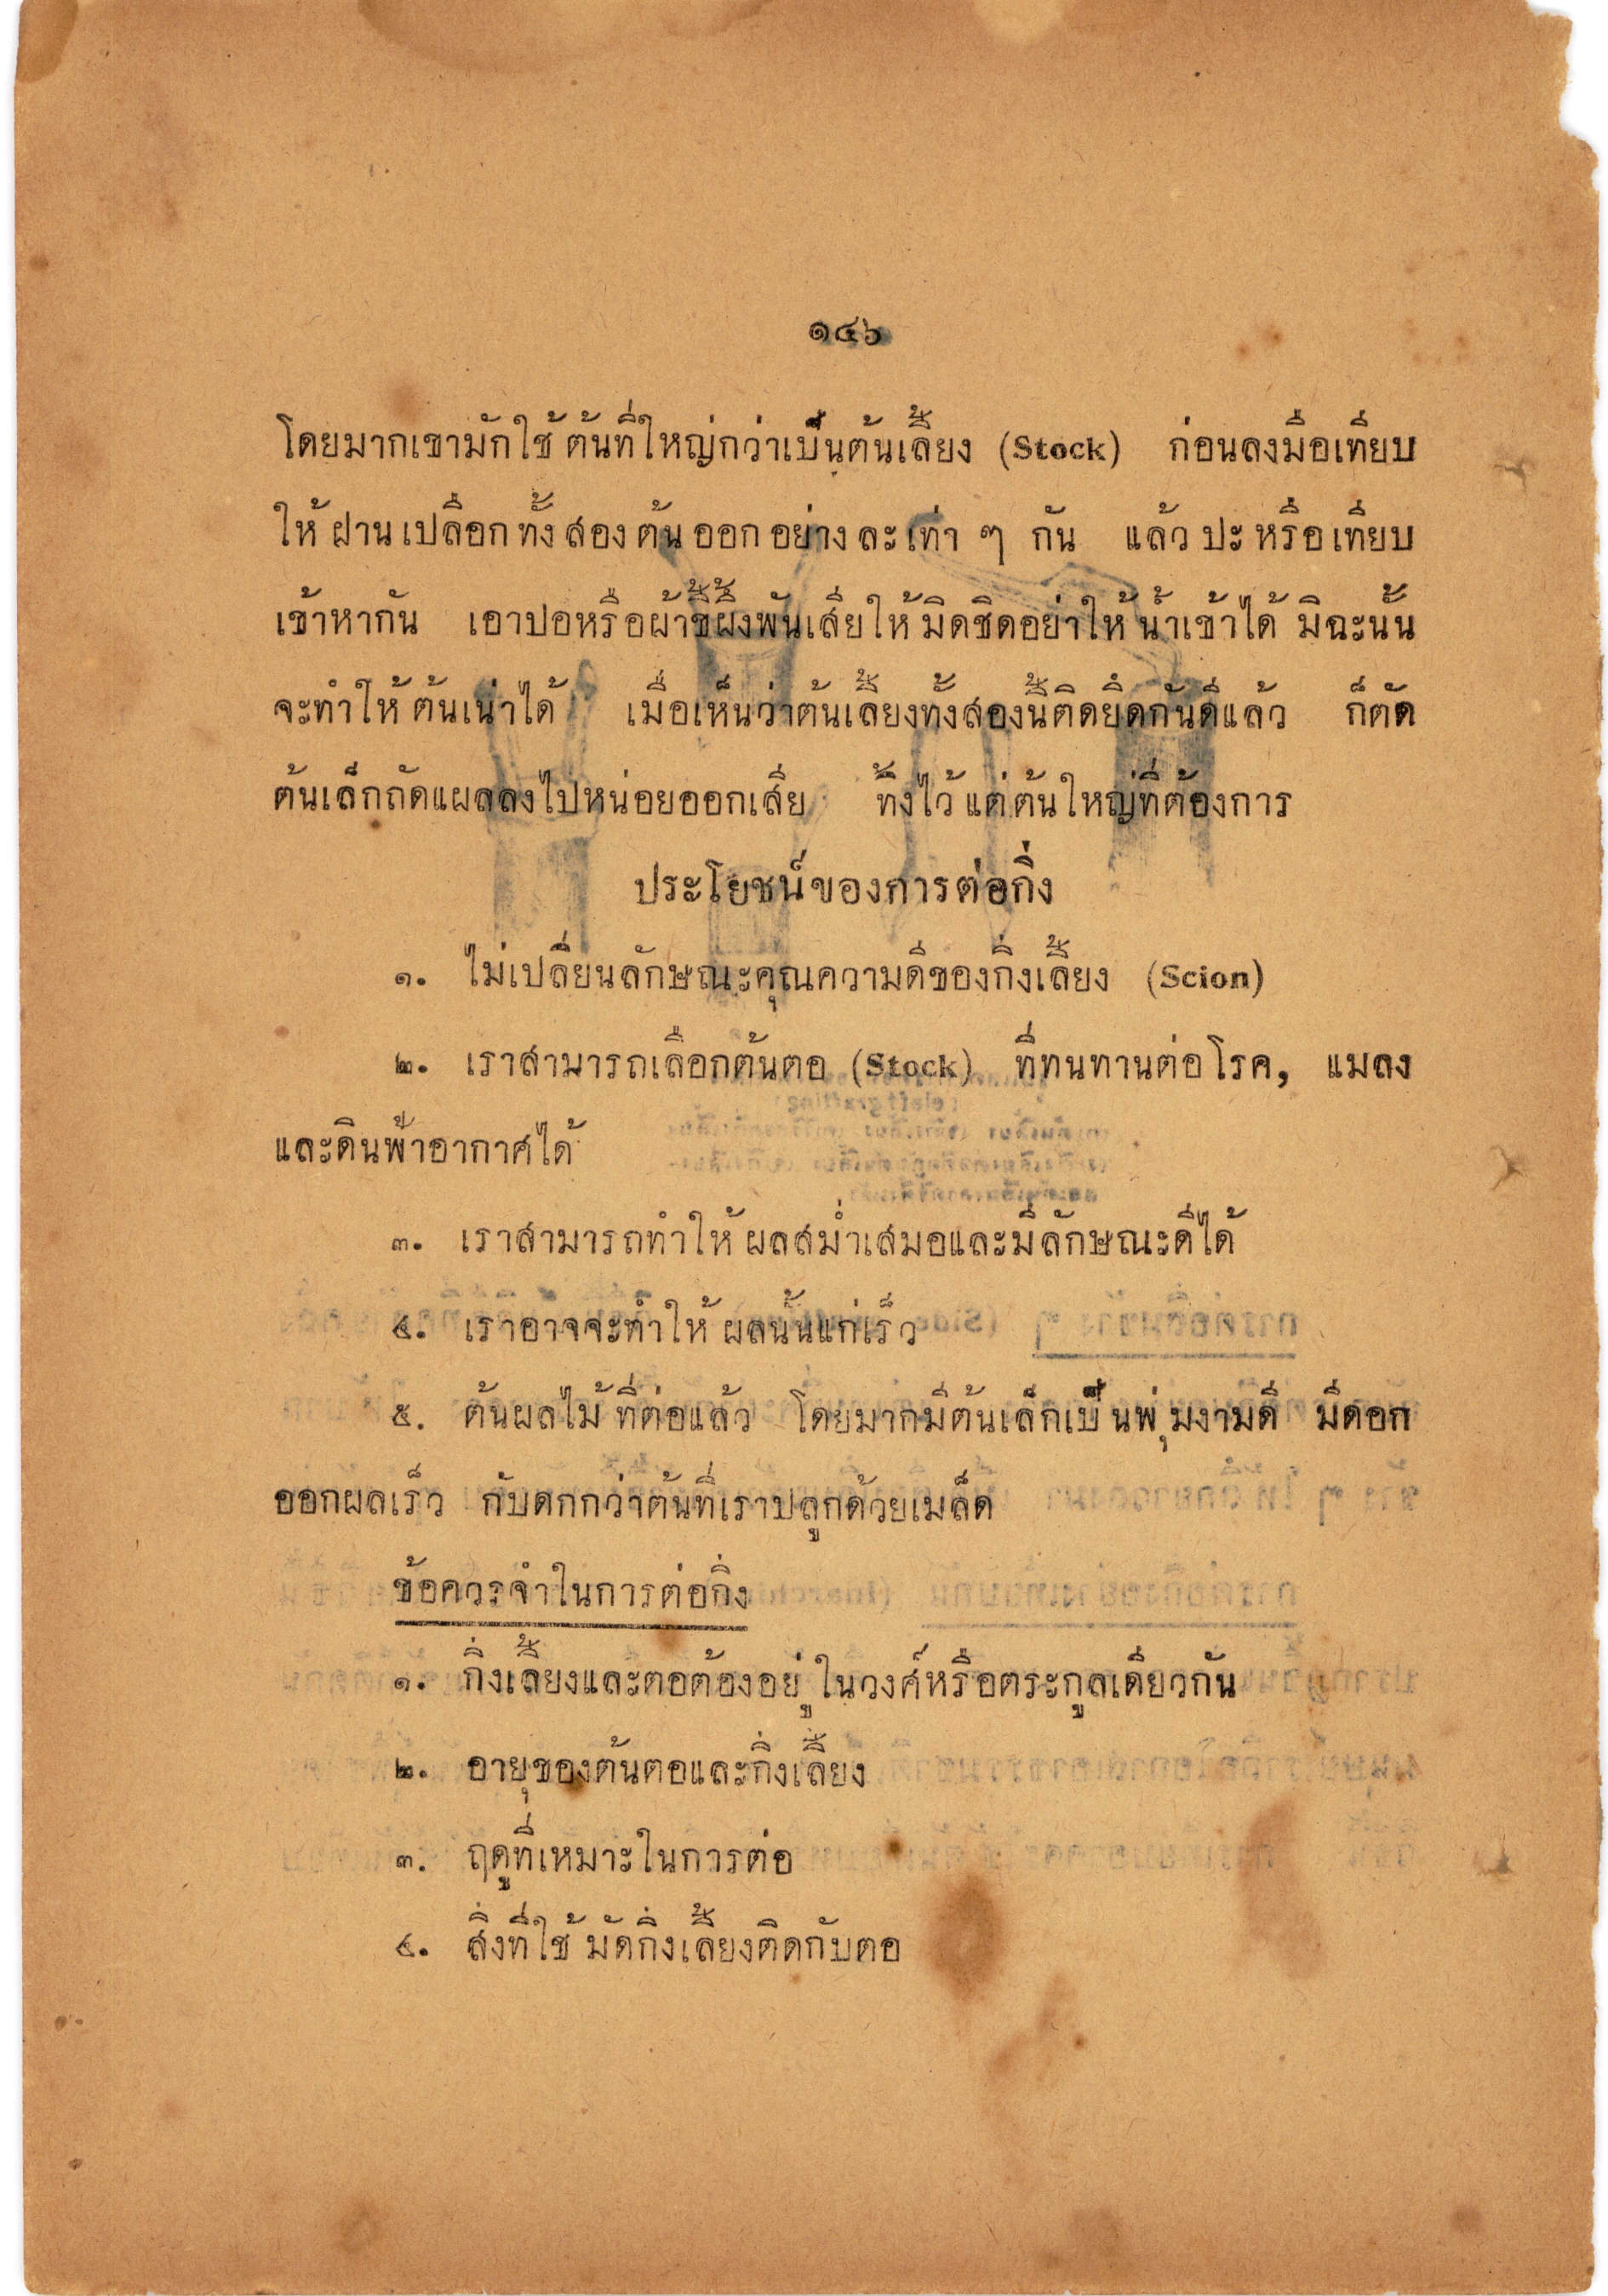 ๑๔๖
โดยมากเขามักใช้ต้นที่ใหญ่กว่าเป็นต้นเลี้ยง (Stock) ก่อนลงมือเทียบ
ให้ฝานเปลือกทั้งสองต้นออกอย่างละเท่า ๆ กัน แล้วปะหรือเทียบ
เข้าหากัน เอาปอหรือผ้าขี้ผึ้งพันเสียให้มิดชิดอย่าให้น้ำเข้าได้ มิฉะนั้น
จะทำให้ต้นเน่าได้ เมื่อเห็นว่าต้นเลี้ยงทั้งสองนี้ติดยึดกันดีแล้ว ก็ตัด
ต้นเล็กถัดแผลลงไปหน่อยออกเสีย ทิ้งไว้แต่ต้นใหญ่ที่ต้องการ
ประโยชน์ของการต่อกิ่ง
๑. ไม่เปลี่ยนลักษณะคุณความดีของกิ่งเลี้ยง (Scion)
๒. เราสามารถเลือกต้นตอ (Stock) ที่ทนทานต่อโรค, แมลง
และดินฟ้าอากาศได้
๓. เราสามารถทำให้ผลสม่ำเสมอและมีลักษณะดีได้
๔. เราอาจจะทำให้ผลนั้นแก่เร็ว
๕. ต้นผลไม้ที่ต่อแล้ว โดยมากมีต้นเล็กเป็นพุ่มงามดี มีดอก
ออกผลเร็ว กับดกกว่าต้นที่เราปลูกด้วยเมล็ด
ข้อควรจำในการต่อกิ่ง
๑. กิ่งเลี้ยงและตอต้องอยู่ในวงศ์หรือตระกูลเดียวกัน
๒. อายุของต้นตอและกิ่งเลี้ยง
๓. ฤดูที่เหมาะในการต่อ
๔. สิ่งที่ใช้มัดกิ่งเลี้ยงติดกับตอ